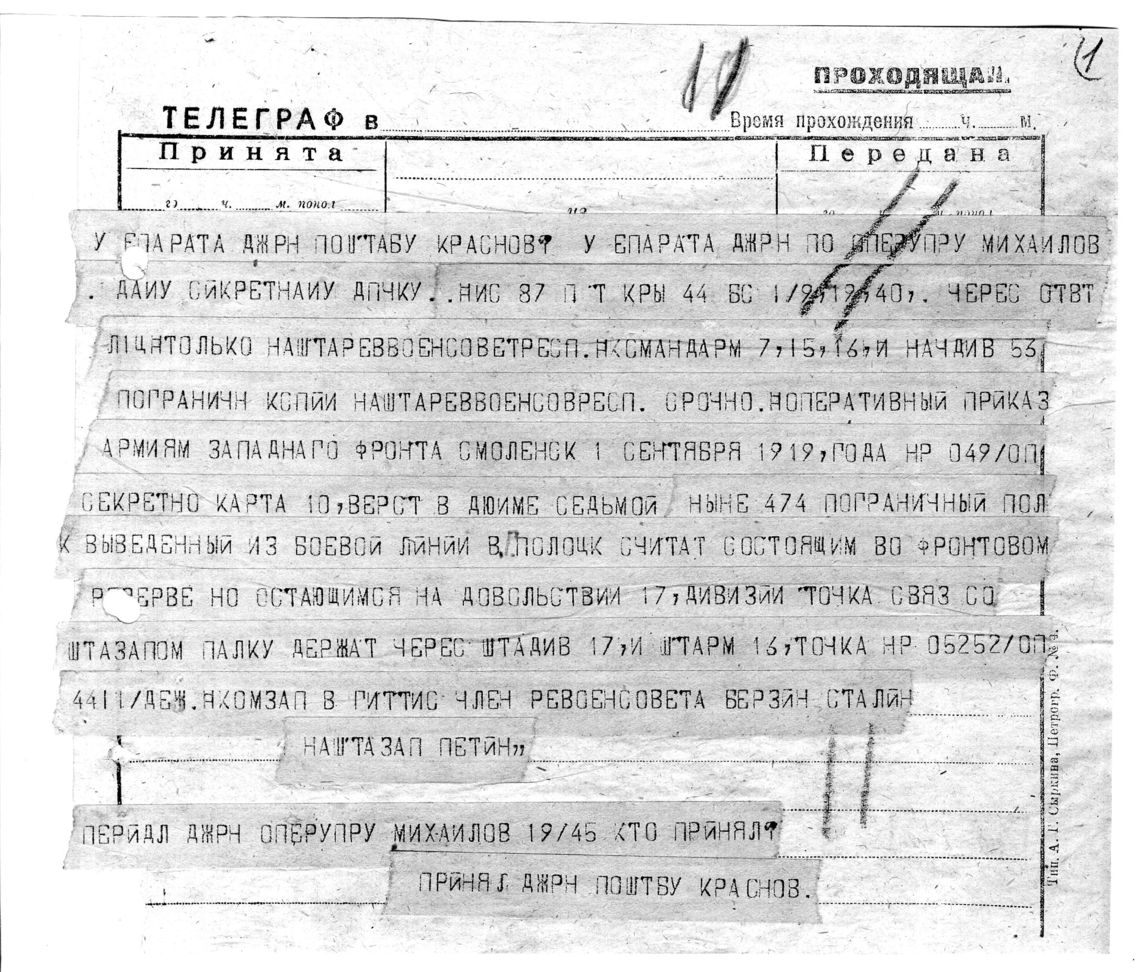 (1
ПРОХОДЯЩАЯ.
ТЕЛЕГРАФ в
Время прохождения ч. м.
Принята
Передана
го ч. м. попол
из
го ч. м. попол
У ЕПАРАТА ДЖРН ПОШТАБУ КРАСНОВ? У ЕПАРАТА ДЖРН ПО ОПЕРУПРУ МИХАИЛОВ
. ДАИУ СЙКРЕТНАИУ ДПЧКУ. .НИС 87 П Т КРЫ 44 БС 1/9,19,40,. ЧЕРЕС ОТВТ
ЛІЦНТОЛЬКО НАШТАРЕВВОЕНСОВЕТРЕСП.НКСМАНДАРМ 7,15,16,И НАЧДИВ 53,
ПОГРАНИЧН КСПЙИ НАШТАРЕВВОЕНСОВРЕСП. СРОЧНО.НОПЕРАТИВНЫЙ ПРЙКАЗ
АРМИЯМ ЗАПАДНАГО ФРОНТА СМОЛЕНСК 1 СЕНТЯБРЯ 1919,ГОДА НР 049/ОП
СЕКРЕТНО КАРТА 10,ВЕРСТ В ДЮИМЕ СЕДЬМОЙ НЫНЕ 474 ПОГРАНИЧНЫЙ ПОЛ
К ВЫВЕДЕННЫЙ ИЗ БОЕВОЙ ЛИНИИ В ПОЛОЦК СЧИТАТ СОСТОЯЩИМ ВО ФРОНТОВОМ
РЕЗЕРВЕ НО ОСТАЮЩИМСЯ НА ДОВСЛЬСТВИИ 17,ДИВИЗЙИ ТОЧКА СВЯЗ СО
ШТАЗАПОМ ПАЛКУ ДЕРЖАТ ЧЕРЕС ШТАДИВ 17,И ШТАРМ 16,ТОЧКА НР 05252/ОП
4411/ДЕЖ.НКОМЗАП В ГИТТИС ЧЛЕН РЕВОЕНСОВЕТА БЕРЗЙН СТАЛЙН
НАШТАЗАП ПЕТЙН„
ПЕРЙДАЛ ДЖРН ОПЕРУПРУ МИХАИЛОВ 19/45 КТО ПРЙНЯЛ?
ПРЙНЯЛ ДЖРН ПОШТБУ КРАСНОВ.
Тип. А. Г. Сыркина, Петрогр. Ф. № 3.